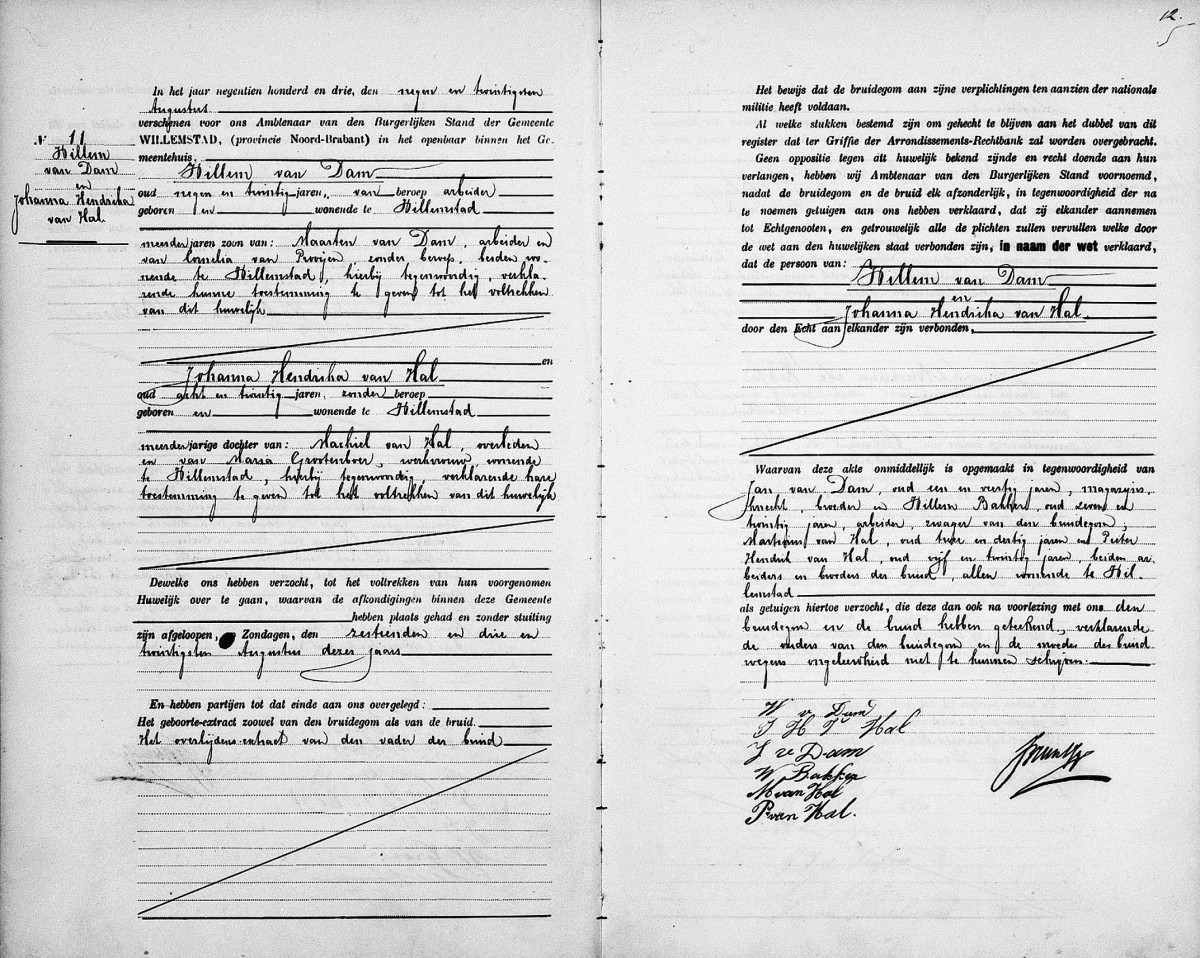 12.
In het jaar negentien honderd en drie, den negen en twintigsten
Augustus
verschenen voor ons Ambtenaar van den Burgerlijken Stand der Gemeente
WILLEMSTAD, (provincie Noord-Brabant) in het openbaar binnen het Ge-
meentehuis.
№ 11
Willem
van Dam
en
Johanna Hendrika
van Hal
Willem van Dam
oud negen en twintig jaren, van beroep arbeider
geboren en wonende te Willemstad
meerderjaren zoon van: Maarten van Dam, arbeider en
van Cornelia van Prooijen zonder beroep, beiden wo-
nende te Willemstad, hierbij tegenwoordig, verkla-
rende hunne toestemming te geven tot het voltrekken
van dit huwelijk
en
Johanna Hendrika van Hal
oud acht en twintig jaren, zonder beroep
geboren en wonende te Willemstad
meerderjarige dochter van: Machiel van Hal, overleden
en van Maria Grootenboer, werkvrouw, wonende
te Willemstad, hierbij tegenwoordig, verklarende hare
toestemming te geven tot het voltrekken van dit huwelijk
Dewelke ons hebben verzocht, tot het voltrekken van hun voorgenomen
Huwelijk over te gaan, waarvan de afkondigingen binnen deze Gemeente
hebben plaats gehad en zonder stuiting
zijn afgeloopen, Zondagen, den zestienden en drie en
twintigsten Augustus dezes jaars
En hebben partijen tot dat einde aan ons overgelegd:
Het geboorte-extract zoowel van den bruidegom als van de bruid.
Het overlijdens-extract van den vader der bruid
Het bewijs dat de bruidegom aan zijne verplichtingen ten aanzien der nationale
militie heeft voldaan.
Al welke stukken bestemd zijn om gehecht te blijven aan het dubbel van dit
register dat ter Griffie der Arrondissements-Rechtbank zal worden overgebracht.
Geen oppositie tegen dit huwelijk bekend zijnde en recht doende aan hun
verlangen, hebben wij Ambtenaar van den Burgerlijken Stand voornoemd,
nadat de bruidegom en de bruid elk afzonderlijk, in tegenwoordigheid der na
te noemen getuigen aan ons hebben verklaard, dat zij elkander aannemen
tot Echtgenooten, en getrouwelijk alle de plichten zullen vervullen welke door
de wet aan den huwelijken staat verbonden zijn, in naam der wet verklaard,
dat de persoon van:
Willem van Dam
en
Johanna Hendrika van Hal
door den Echt aan elkander zijn verbonden,
Waarvan deze akte onmiddelijk is opgemaakt in tegenwoordigheid van
Jan van Dam, oud een en veertig jaren, magazijns-
knecht, broeder en Willem Bakker, oud zeven en
twintig jaren, arbeider, zwager van den bruidegom;
Martinus van Hal, oud twee en dertig jaren en Pieter
Hendrik van Hal, oud vijf en twintig jaren, beiden ar-
beiders en broeders der bruid, allen wonende te Wil-
lemstad
als getuigen hiertoe verzocht, die deze dan ook na voorlezing met ons den
bruidegom en de bruid hebben geteekend, verklarende
de ouders van den bruidegom en de moeder der bruid
wegens ongeleerdheid niet te kunnen schrijven.
W v Dam
J H v Hal
J v Dam
W Bakker
M van Hal
P van Hal.